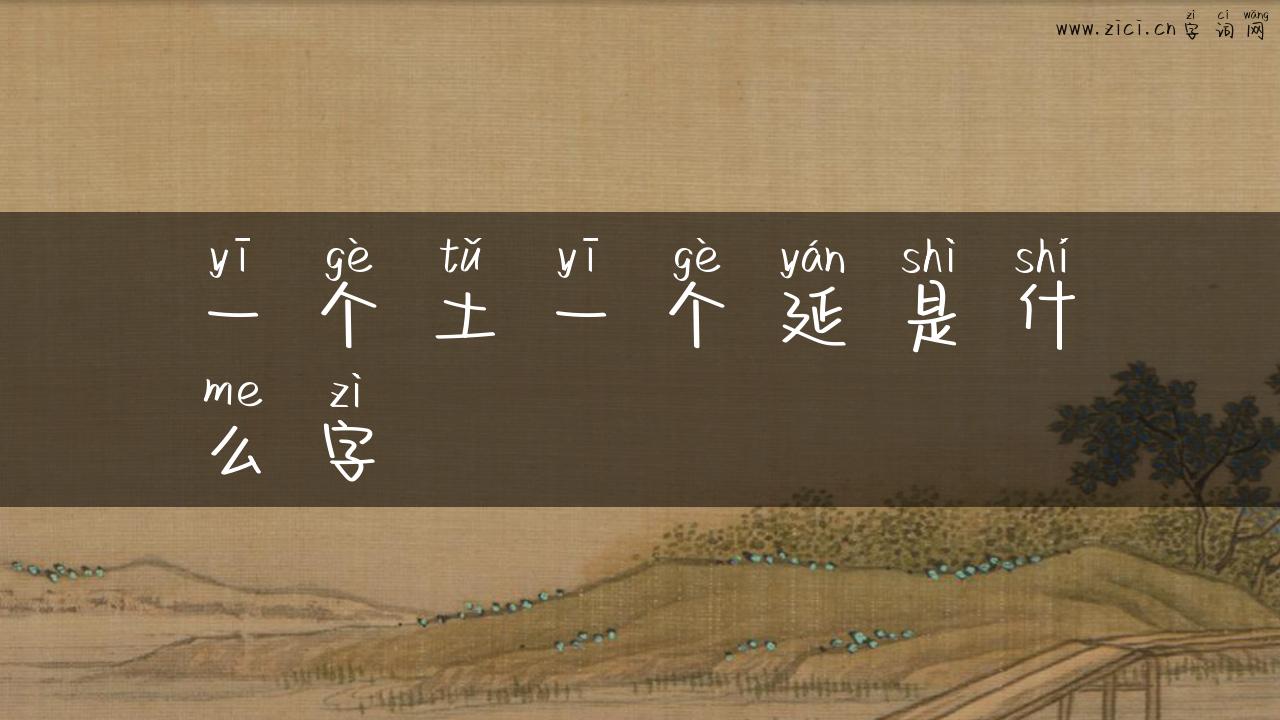 zì cí wǎng
www.zici.cn字词网
yī gè tǔ yī gè yán shì shí
一个土一个延是什
me zì
么字